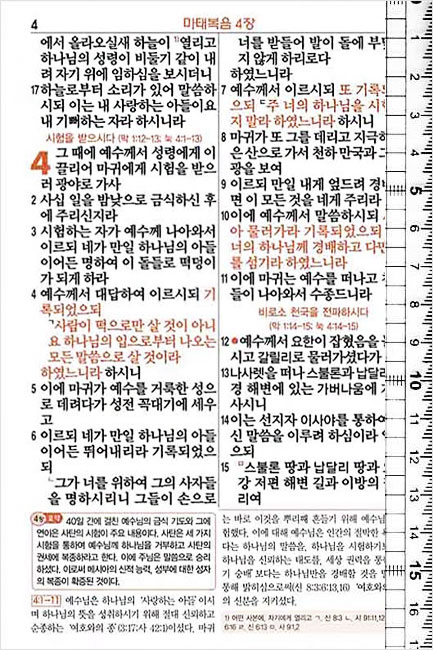 4
마태복음 4장
에서 올라오실새 하늘이 ㄱ열리고
하나님의 성령이 비둘기 같이 내
려 자기 위에 임하심을 보시더니
17 하늘로부터 소리가 있어 말씀하
시되 이는 내 사랑하는 아들이요
내 기뻐하는 자라 하시니라
시험을 받으시다 (막 1:12-13; 눅 4:1-13)
4 그 때에 예수께서 성령에게 이
끌리어 마귀에게 시험을 받으
러 광야로 가사
2 사십 일을 밤낮으로 금식하신 후
에 주리신지라
3 시험하는 자가 예수께 나아와서
이르되 네가 만일 하나님의 아들
이어든 명하여 이 돌들로 떡덩이
가 되게 하라
4 예수께서 대답하여 이르시되 기
록되었으되
ㄱ사람이 떡으로만 살 것이 아니
요 하나님의 입으로부터 나오는
모든 말씀으로 살 것이라
하였느니라 하시니
5 이에 마귀가 예수를 거룩한 성으
로 데려다가 성전 꼭대기에 세우
고
6 이르되 네가 만일 하나님의 아들
이어든 뛰어내리라 기록되었으
되
ㄴ그가 너를 위하여 그의 사자들
을 명하시리니 그들이 손으로
너를 받들어 발이 돌에 부
지 않게 하리로다
하였느니라
7 예수께서 이르시되 또 기록
으되 ㄷ주 너의 하나님을 시
지 말라 하였느니라 하시니
8 마귀가 또 그를 데리고 지극히
은 산으로 가서 천하 만국과 그
광을 보여
9 이르되 만일 내게 엎드려 경
면 이 모든 것을 네게 주리라
10 이에 예수께서 말씀하시되
아 물러가라 기록되었으되
너의 하나님께 경배하고 다만
를 섬기라 하였느니라
11 이에 마귀는 예수를 떠나고
들이 나아와서 수종드니라
비로소 천국을 전파하시다
(막 1:14-15; 눅 4:14-15)
12 예수께서 요한이 잡혔음을
시고 갈릴리로 물러가셨다가
13 나사렛을 떠나 스불론과 납달리
경 해변에 있는 가버나움에
사시니
14 이는 선지자 이사야를 통하여
신 말씀을 이루려 하심이라
으되
15 ㅁ스불론 땅과 납달리 땅과
강 저편 해변 길과 이방의
리여
4장 요약 40일 간에 걸친 예수님의 금식 기도와 그에
연이은 사탄의 시험이 주요 내용이다. 사탄은 세 가지
시험을 통하여 예수님께 하나님을 거부하고 사탄의
권세에 복종하라고 한다. 이에 주님은 말씀으로 승리
하셨다. 이로써 메시아의 신적 능력, 성부에 대한 성자
의 복종이 확증된 것이다.
4:1-11 예수님은 하나님의 '사랑하는 아들'이시
며 하나님의 뜻을 성취하시기 위해 절대 신뢰하고
순종하는 '여호와의 종'(3:17;사 42:1)이셨다. 마귀
는 바로 이것을 뿌리째 흔들기 위해 예수님
험했다. 이에 대해 예수님은 인간의 절박한
다는 하나님의 말씀을, 하나님을 시험하기
하나님을 신뢰하는 태도를, 세상 권력을 통
기 숭배' 보다는 하나님만을 경배할 것을
통해 밝히심으로써(신 8:3;6:13,16) '여호와
의 신분을 지키셨다.
1) 어떤 사본에, 자기에게 열리고 ㄱ. 신 8:3 ㄴ. 시 91:11,12
6:16 ㄹ. 신 6:13 ㅁ. 사 9:1,2
5
10
15
16